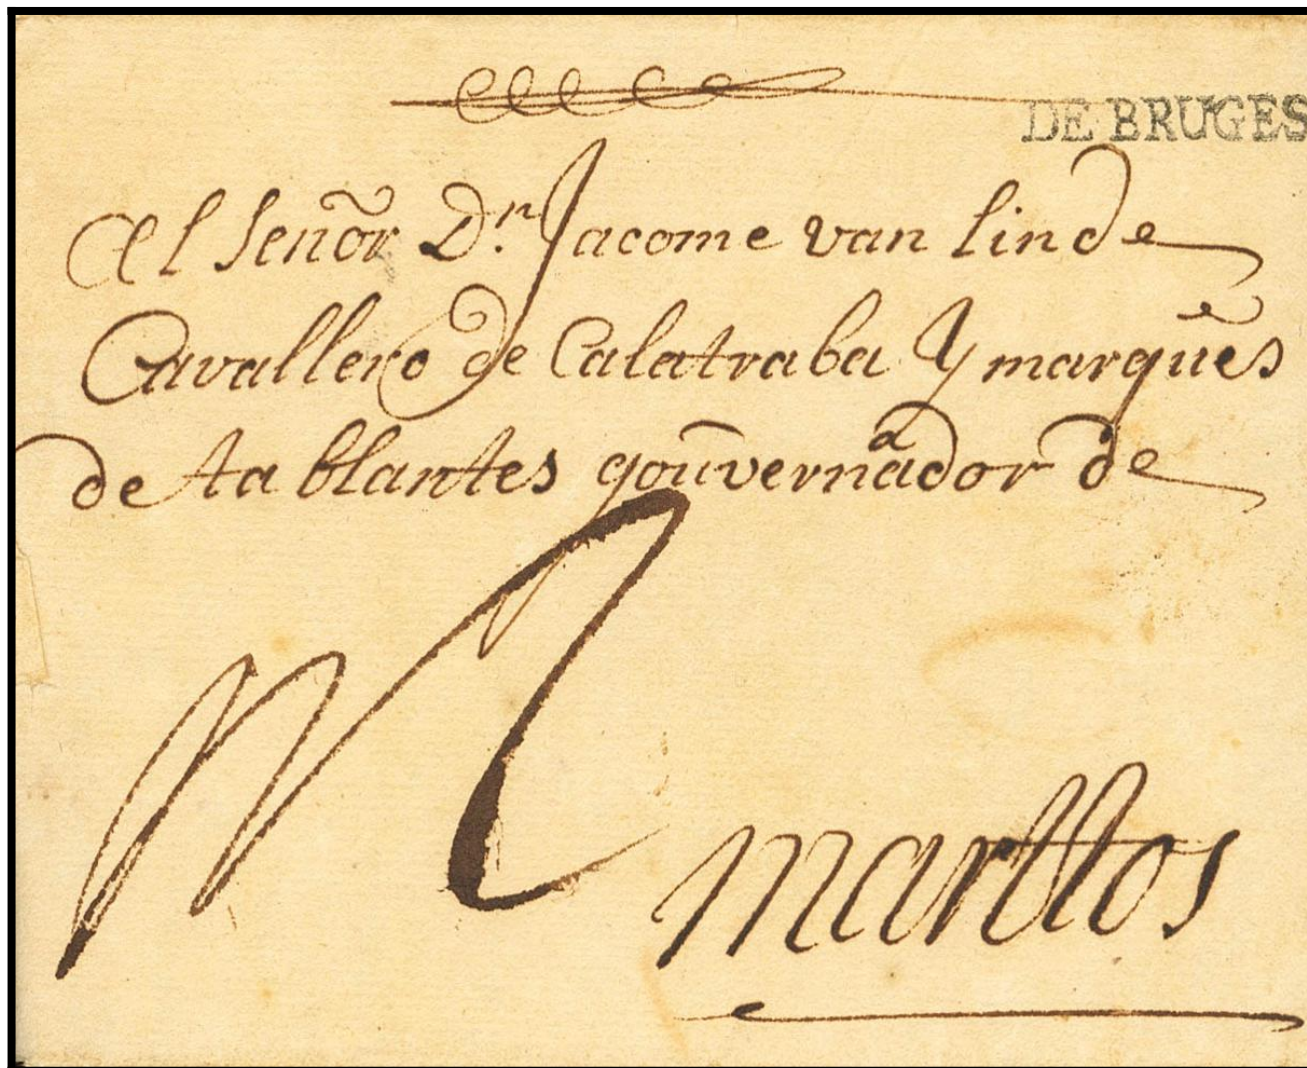 DE BRUGES
Al Señor Dn. Jacome van linde
Cavallero de Calatraba Y marques
de ta blantes gouvernador de
M
marttos